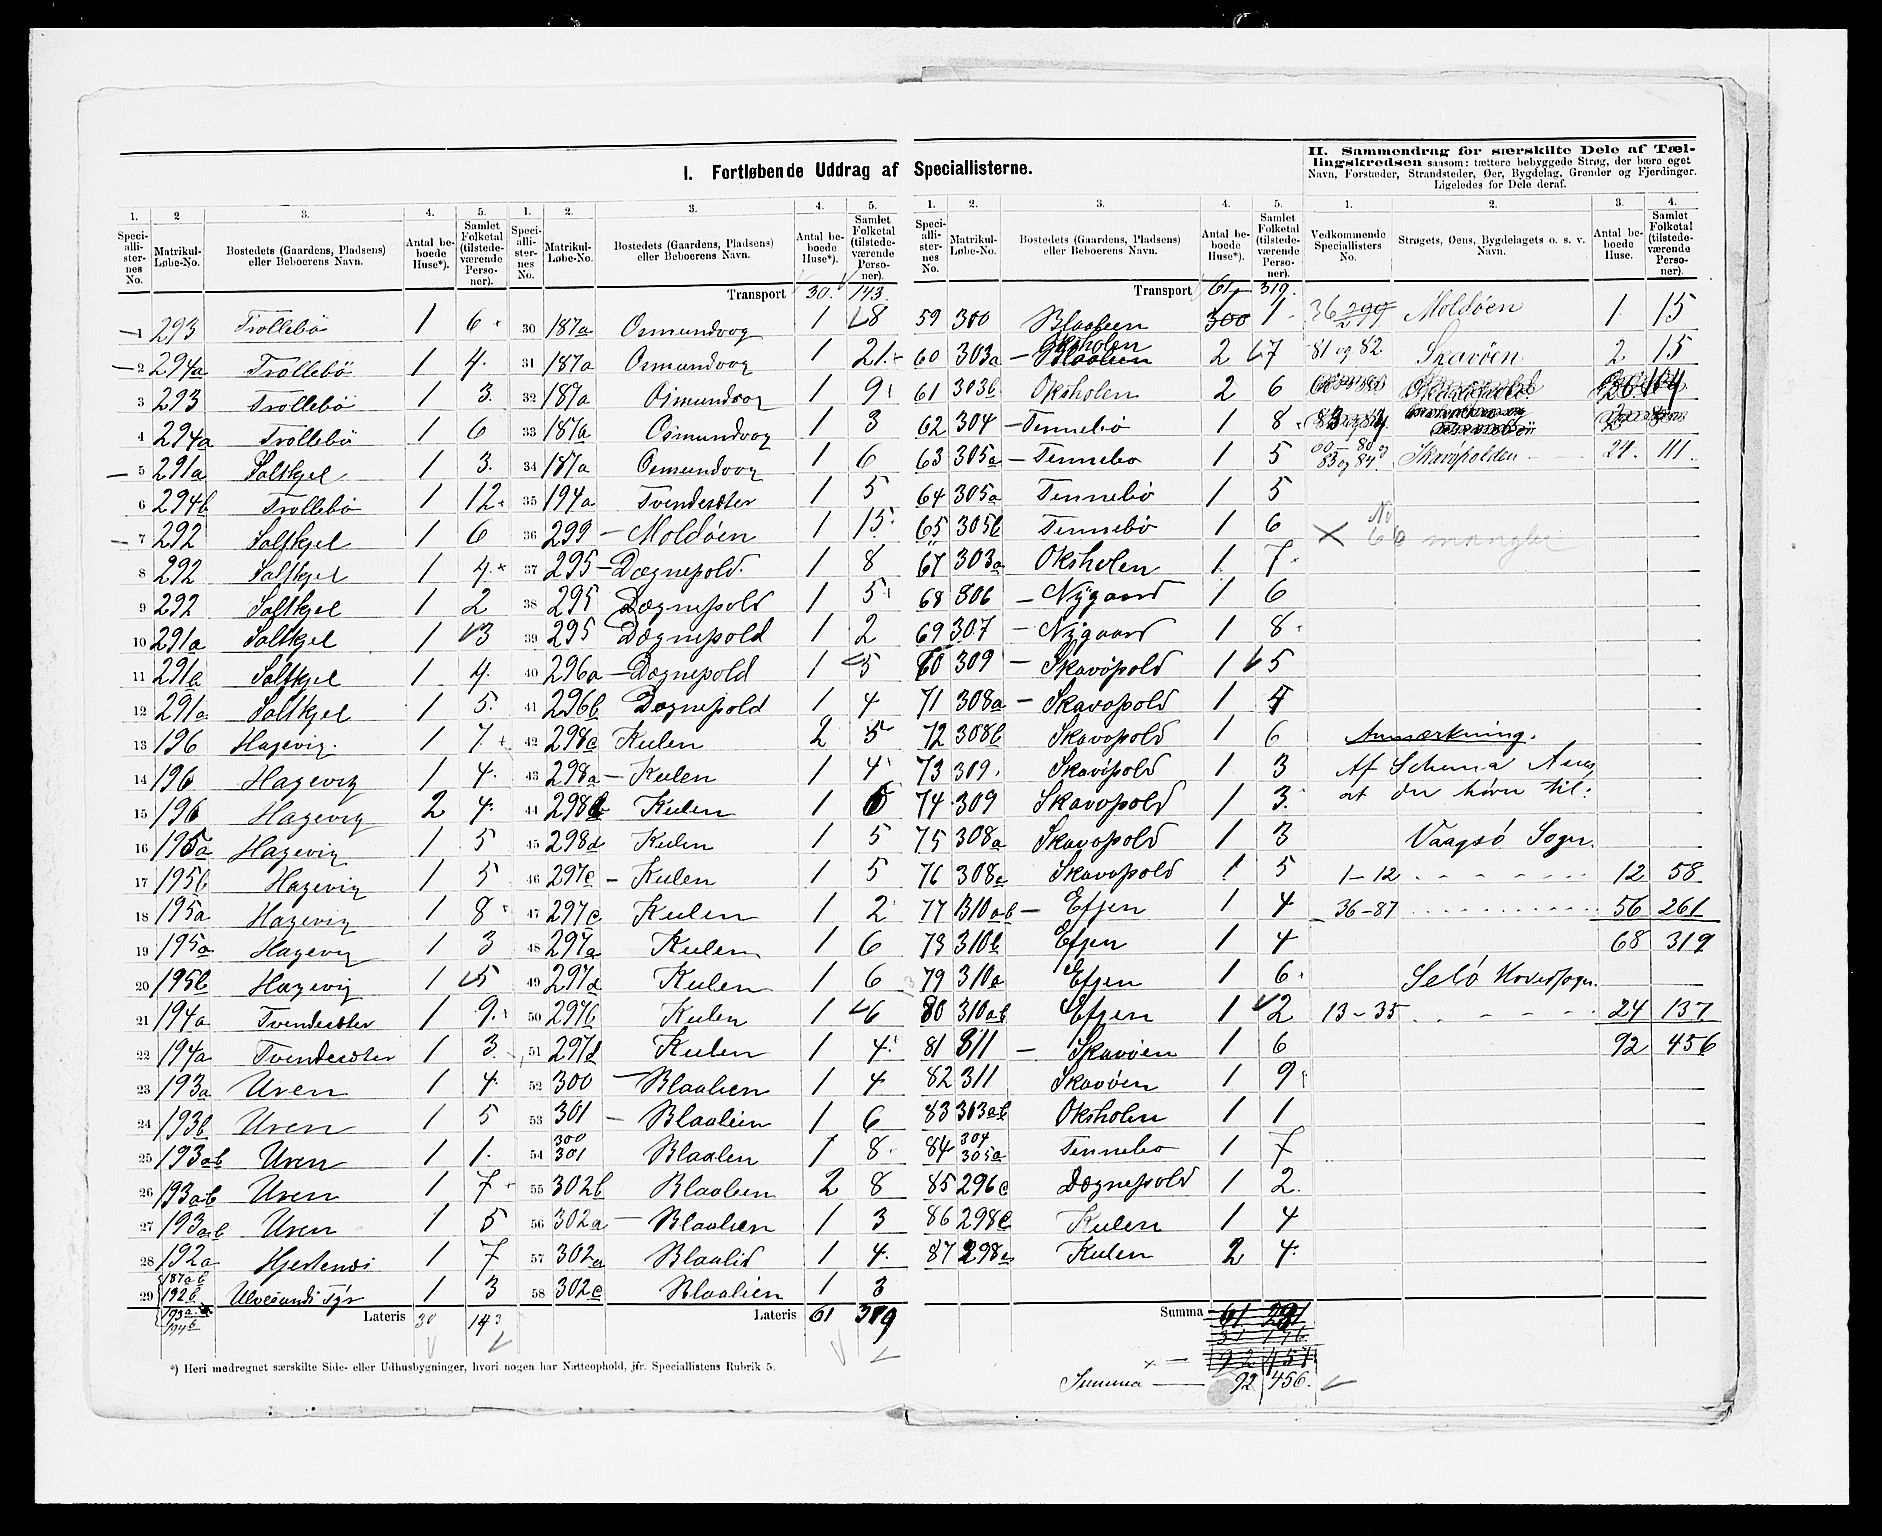 I. Fortløbende Uddrag af Speciallisterne.
1. 2 3. 4. 5.
Speciallisternes No. Matrikul-Løbe-No. Bostedets (Gaardens, Pladsens) eller Beboerens Navn. Antal beboede Huse*). Samlet Folketal (tilstedeværende Personer).
1 293 Trollebö 1 6
2 294a Trollebö 1 4.
3 293 Trollebö 1 3.
4 294a Trollebö 1 6
5 291a Saltkjel 1 3.
6 294b Trollebö 1 12
7 292 Saltkjel 1 6
8 292 Saltkjel 1 4.
9 292 Saltkjel 1 2
10 291a Saltkjel 1 3
11 291a Saltkjel 1 4.
12 291a Saltkjel 1 5.
13 196 Hagevig. 1 7.
14 196 Hagevig 1 4.
15 196 Hagevig 2 4.
16 195a Hagevig 1 5
17 195b Hagevig 1 5
18 195a Hagevig 1 8
19 195a Hagevig 1 3
20 195b Hagevig 1 5
21 194a Tvendesæter 1 9.
22 194a Tvendesæter 1 3.
23 193a Uren 1 4.
24 193b Uren 1 5
25 193ab Uren 1 1.
26 193ab Uren 1 7
27 193ab Uren 1 5
28 192a Hjertenæs 1 7
29 187ab 192b Ulvesunds Fyr 1 3
Lateris 30 143
*) Heri medregnet særskilte Side- eller Udhusbygninger, hvori nogen har Natteophold, jfr. Speciallistens Rubrik 5.
1. 2. 3. 4. 5.
Speciallisternes No. Matrikul-Løbe-No. Bostedets (Gaardens, Pladsens) eller Beboerens Navn. Antal beboede Huse*). Samlet Folketal (tilstedeværende Personer).
Transport 30. 143.
30 187a Osmundvog 1 8
31 187a Osmundvog 1 21.
32 187a Osmundvog 1 9
33 187a Osmundvog 1 3
34 187a Osmundvog 1 6
35 194a Tvendesæter 1 5
36 299 – Moldöen 1 15.
37 295 – Dægnepold. 1 8
38 295 Dægnepold 1 5
39 295 Dægnepold 1 2
40 296a – Dægnepold 1 5
41 296b Dægnepold 1 4
42 298c Kulen 2 5
43 298a – Kulen 1 4
44 298b Kulen 1 6
45 298d Kulen 1 5
46 297c – Kulen 1 5
47 297c Kulen 1 2
48 297a Kulen 1 6
49 297d Kulen 1 6
50 297b Kulen 1 6
51 297d Kulen 1 4
52 300 – Blaalien 1 4
53 301 – Blaalien 1 6
54 300 301 Blaalen 1 8.
55 302b Blaalien 2 8
56 302a – Blaalien 1 3
57 302a Blaalid 1 4.
58 302c Blaalien 1 3
Lateris 61 319
1. 2. 3. 4. 5.
Speciallisternes No. Matrikul-Løbe-No. Bostedets (Gaardens, Pladsens) eller Beboerens Navn. Antal beboede Huse*). Samlet Folketal (tilstedeværende Personer).
Transport 61 319.
59 300 Blaalien 1 1.
60 303a – Oksholen 2 7
61 303b Oksholen 2 6
62 304 – Tennebö 1 8
63 305a – Tennebo 1 5
64 305a Tennebö 1 5
65 305b Tennebö 1 6
67 303a Oksholen 1 7
68 306 – Nygaard 1 6
69 307 – Nygaard 1 8
70 309 – Skavöpold 1 5
71 308a – Skavopold 1 4
72 308b Skavopold 1 6
73 309. Skavöpold 1 3
74 309 Skavopold 1 3.
75 308a Skavopold 1 3
76 308a Skavopold 1 5
77 310ab – Efjen 1 4
78 310b Efjen 1 4
79 310a Efjen 1 6
80 310ab Efjen 1 2
81 311 – Skavöen 1 6
82 311 Skavöen 1 9
83 303ab Oksholen 1 1
84 304 305a Tennebo 1 7
85 296c Dægnepold 1 2.
86 298c Kulen 1 4
87 298a Kulen 2 4.
Summa
Summa — 92 456.
II. Sammendrag for særskilte Dele af Tællingskredsen saasom: tættere bebyggede Strøg, der bære eget
Navn, Forstæder, Strandsteder, Øer, Bygdelag, Grender og Fjerdinger.
Ligeledes for Dele deraf.
1. 2. 3. 4.
Vedkommende Speciallisters No. Strøgets, Øens, Bygdelagets o. s. v. Navn. Antal beboede Huse. Samlet Folketal (tilstedeværende Personer).
36 Moldöen 1. 15
81 og 82 Skavöen 2 15
83 og 84 Skavöpolden 21. 111.
X No 66 mangler
Anmærkning.
Af Schema
at der hörer til:
Vaagsö Sogn.
1–12 12 58
36–87 56 261
68 319
Selö Hovedsogn.
13–35 24 137
92 456